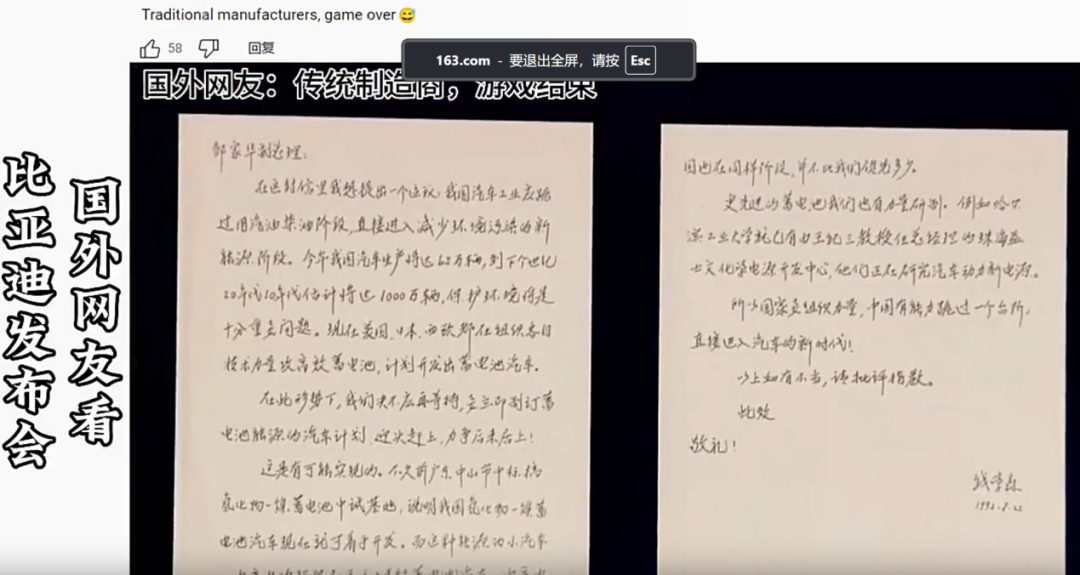 Traditional manufacturers, game over😅
58 回复
163.com - 要退出全屏，请按 Esc
国外网友：传统制造商，游戏结束
国外网友看
比亚迪发布会
邹家华副总理：
在这封信里我想提出一个建议：我国汽车工业应跳
过用汽油柴油阶段，直接进入减少环境污染的新
能源阶段。今年我国汽车生产将达
20年代10年代估计将达1000万辆，保护环境将是
十分重要问题。现在美国、日本、西欧都在组织各自
技术力量攻高效蓄电池，计划开发出蓄电池汽车。
在此形势下，我们决不应再等待，要立即制订蓄
电池能源的汽车计划，迎头赶上，力争后来居上！
这是有可能实现的。不久前广东中山市中标搞
氢化物—镍蓄电池中试基地，说明我国氢化物—镍蓄
电池汽车现在就可着手开发。而这种能源的小汽车
国也在同样阶段，并不比我们领先多少。
更先进的蓄电池我们也有力量研制。例如哈尔
滨工业大学就已有由王纪三教授任总经理的珠海益
士文化学电源开发中心，他们正在研究汽车动力新电源。
所以国家要组织力量，中国有能力跳过一个台阶，
直接进入汽车的新时代！
以上如有不当，请批评指教。
此致
敬礼！
钱学森
1992.8.22